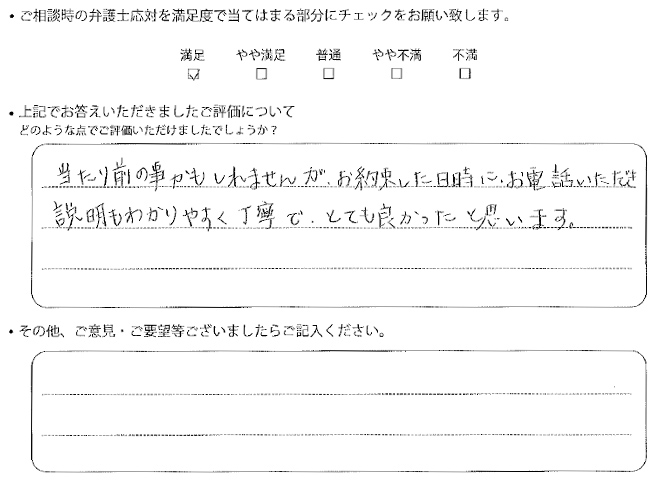 ・ご相談時の弁護士応対を満足度で当てはまる部分にチェックをお願い致します。
満足 やや満足 普通 やや不満 不満
☑ □ □ □ □
・上記でお答えいただきましたご評価について
どのような点でご評価いただけましたでしょうか?
当たり前の事かもしれませんが、お約束した日時に、お電話いただき
説明もわかりやすく丁寧で、とても良かったと思います。
・その他、ご意見・ご要望等ございましたらご記入ください。